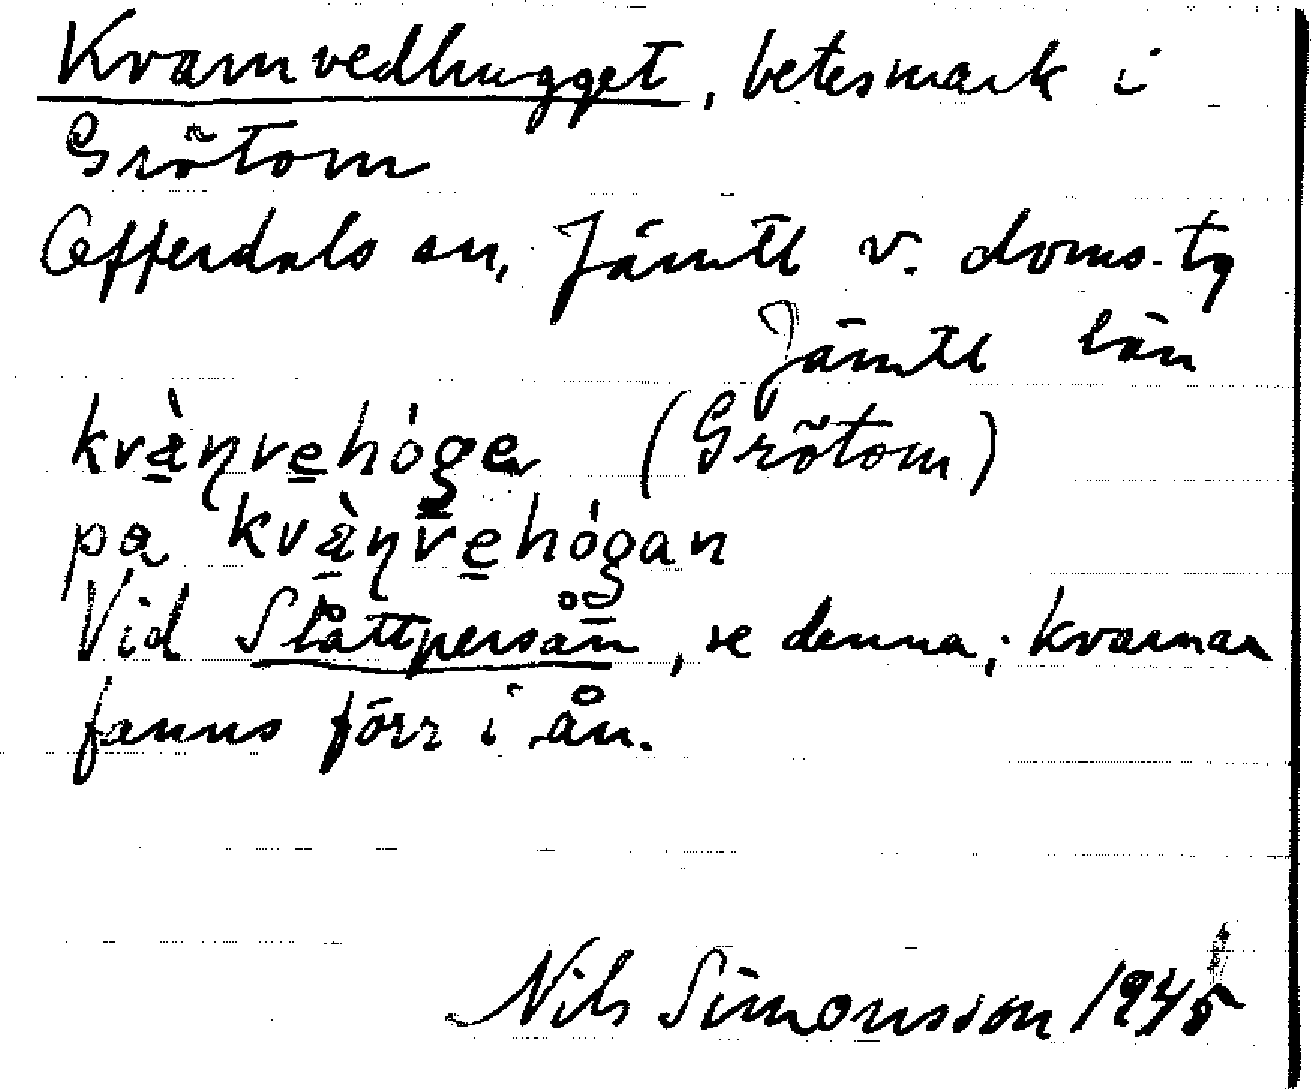 Kvarnvedhugget, betesmark i
Grötom
Offerdals sn, Jämtl v. doms. tg
Jämtl län
kvà̱ɳve̱hóge (Grötom)
pa kvà̱ɳve̱hógan
Vid Slåttpersån, se denna; kvarnar
fanns förr i ån.
Nils Simonsson 1945